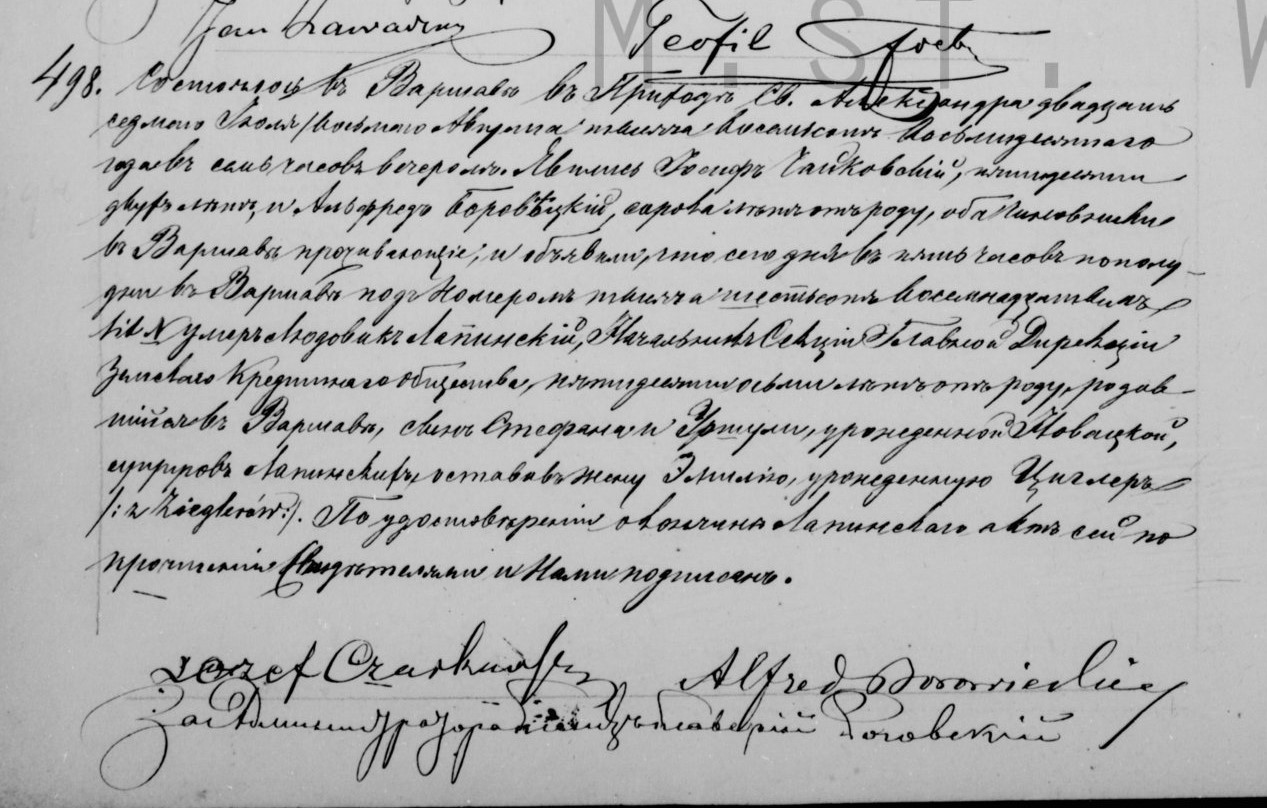 Jan Zawadzki
Teofil
M.ST. W
498. Состоялось въ Варшавѣ въ Приходѣ Св. Александра двадцать
седмого Іюля/восьмого Августа тысяча восемьсотъ восьмидесятаго
года въ семь часовъ вечеромъ. Явились Іосифъ Чайковскій, пятидесяти
двухъ лѣтъ, и Альфредъ Боровѣцкій, сорока лѣтъ отъ роду, оба чиновники
въ Варшавѣ проживающіе, и объявили, что сего дня въ пять часовъ пополу-
дни въ Варшавѣ подъ номеромъ тысяча шестьсотъ восемнадцатымъ
lit N умеръ Людовикъ Лапинскій, Начальникъ Секціи Главной Дирекціи
Земскаго Кредитнаго общества, пятидесяти осьми лѣтъ отъ роду, родив-
шійся въ Варшавѣ, сынъ Стефана и Уршули, урожденной Новацкой,
супруговъ Лапинскихъ, оставивъ жену Эмилію, урожденную Циглеръ
/: z Zieglerów :/. По удостовѣреніи о кончинѣ Лапинскаго актъ сей по
прочтеніи свидѣтелями и Нами подписанъ.
Józef Czajkowski Alfred Borowiecki